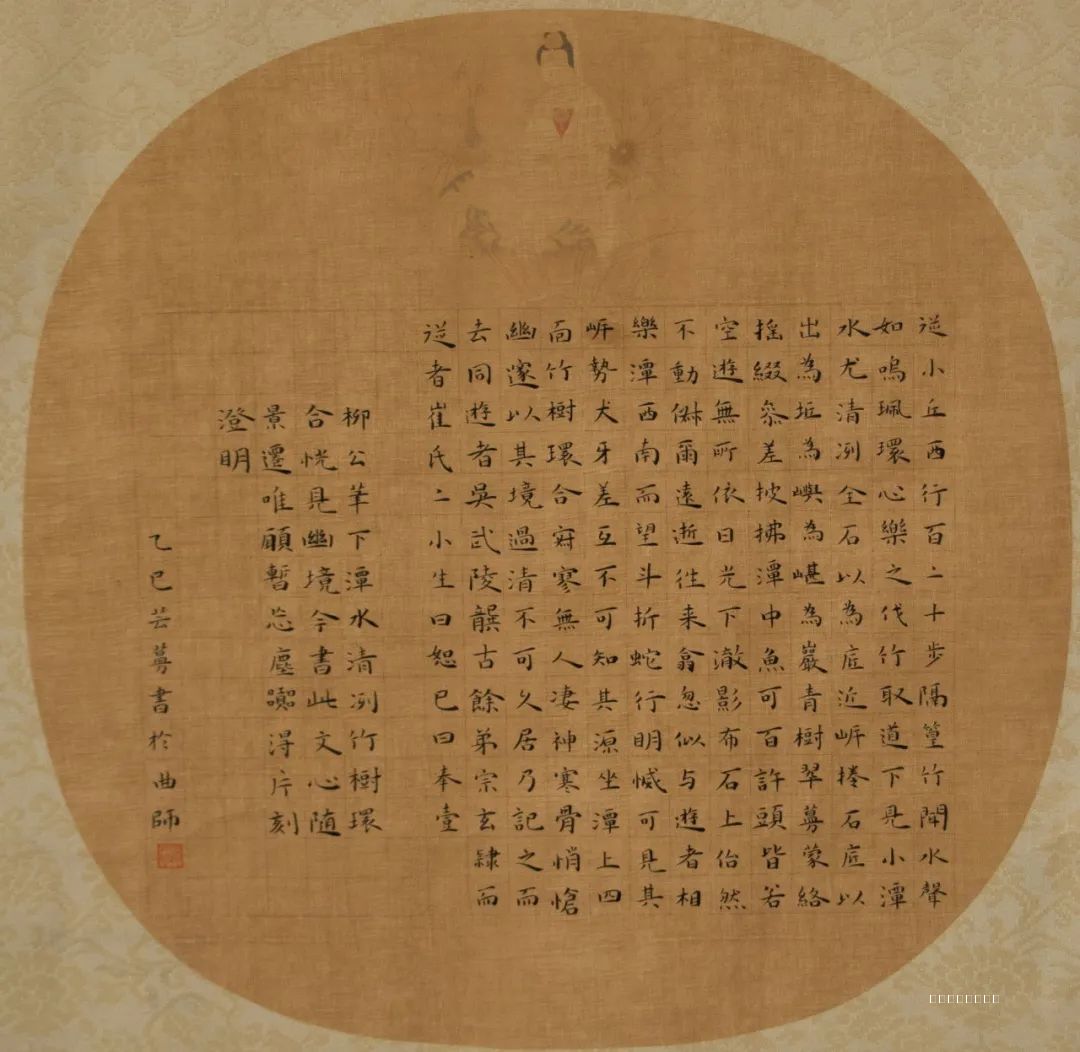 從小丘西行百二十步隔篁竹聞水聲
如鳴珮環心樂之伐竹取道下見小潭
水尤清冽全石以為底近岸捲石底以
出為坻為嶼為嵁為巖青樹翠蔓蒙絡
搖綴參差披拂潭中魚可百許頭皆若
空遊無所依日光下澈影布石上佁然
不動俶爾遠逝往來翕忽似与遊者相
樂潭西南而望斗折蛇行明滅可見其
岸勢犬牙差互不可知其源坐潭上四
面竹樹環合寂寥無人凄神寒骨悄愴
幽邃以其境過清不可久居乃記之而
去同遊者吳武陵龔古餘弟宗玄隸而
從者崔氏二小生曰恕己曰奉壹
柳公筆下潭水清冽竹樹環
合恍見幽境今書此文心隨
景遷唯願暫忘塵躅得片刻
澄明
乙巳芸蕚書於曲師